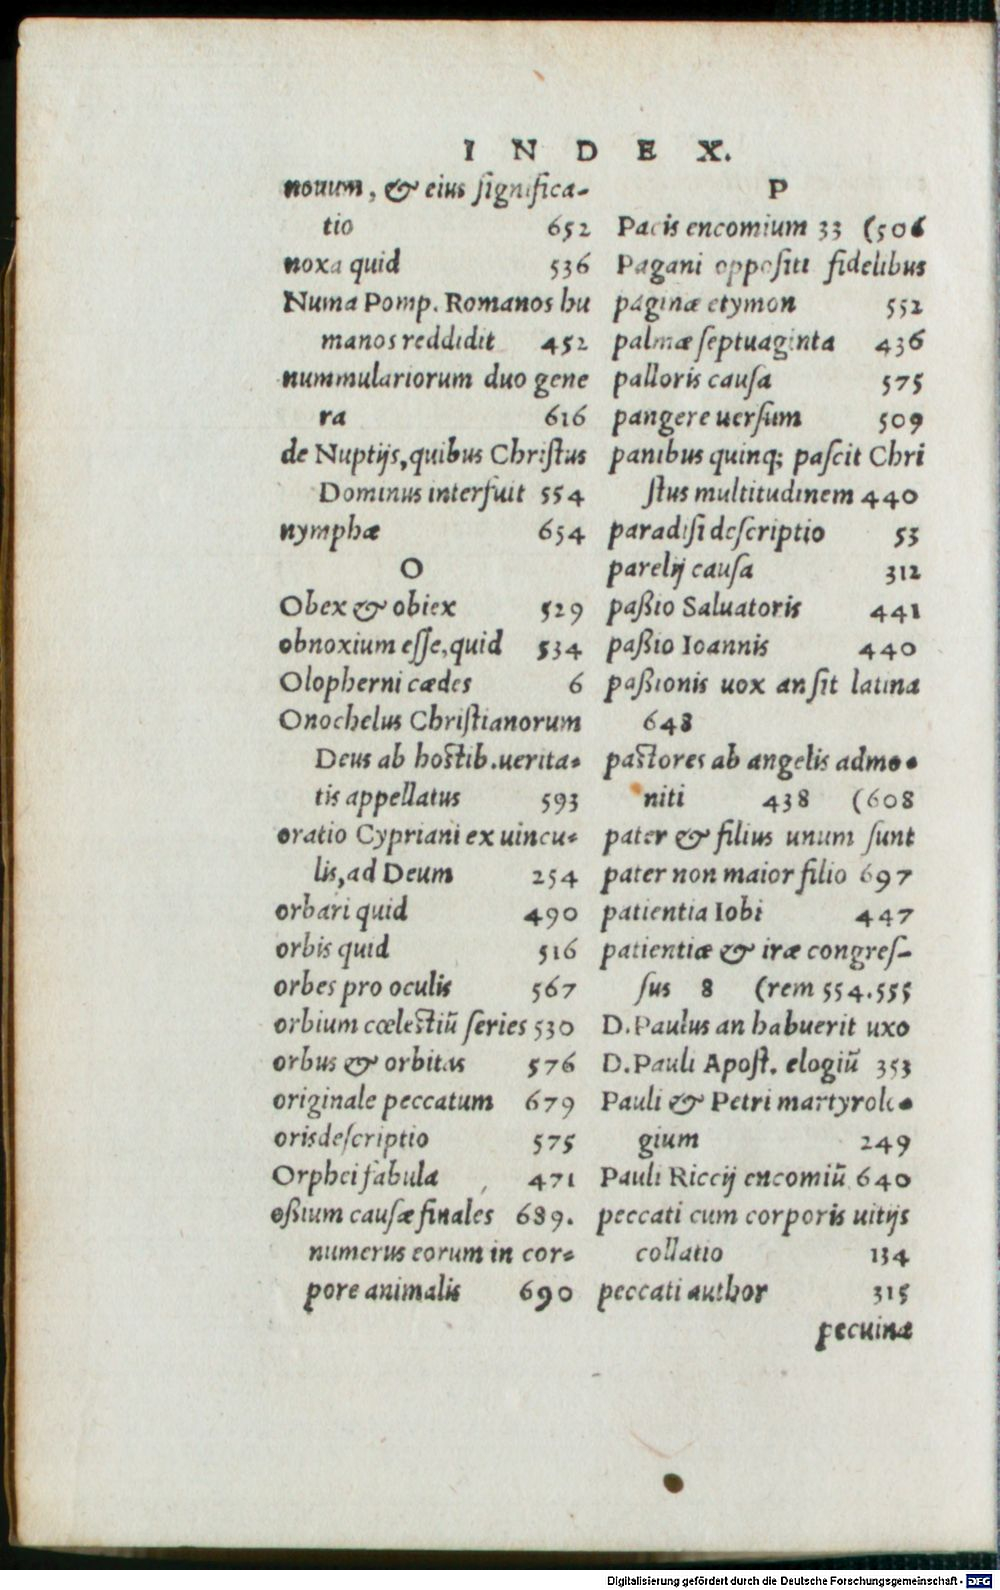 INDEX.
nouum, & eius significa-
tio 652
noxa quid 536
Numa Pomp. Romanos hu
manos reddidit 452
nummulariorum duo gene
ra 616
de Nuptijs, quibus Christus
Dominus interfuit 554
nymphæ 654
O
Obex & obiex 529
obnoxium esse, quid 534
Olopherni cædes 6
Onochelus Christianorum
Deus ab hostib. uerita-
tis appellatus 593
oratio Cypriani ex uincu-
lis, ad Deum 254
orbari quid 490
orbis quid 516
orbes pro oculis 567
orbium cœlestiũ series 530
orbus & orbitas 576
originale peccatum 679
oris descriptio 575
Orphei fabula 471
oßium causæ finales 689.
numerus eorum in cor-
pore animalis 690
P
Pacis encomium 33 (506
Pagani oppositi fidelibus
paginæ etymon 552
palmæ septuaginta 436
palloris causa 575
pangere uersum 509
panibus quinq; pascit Chri
stus multitudinem 440
paradisi descriptio 53
parelij causa 312
paßio Saluatoris 441
paßio Ioannis 440
paßionis uox an sit latina
648
pastores ab angelis admo-
niti 438 (608
pater & filius unum sunt
pater non maior filio 697
patientia Iobi 447
patientiæ & iræ congres-
sus 8 (rem 554.555
D. Paulus an habuerit uxo
D. Pauli Apost. elogiũ 353
Pauli & Petri martyrolo-
gium 249
Pauli Riccij encomiũ 640
peccati cum corporis uitijs
collatio 134
peccati author 315
pecuinæ
Digitalisierung gefördert durch die Deutsche Forschungsgemeinschaft - DFG